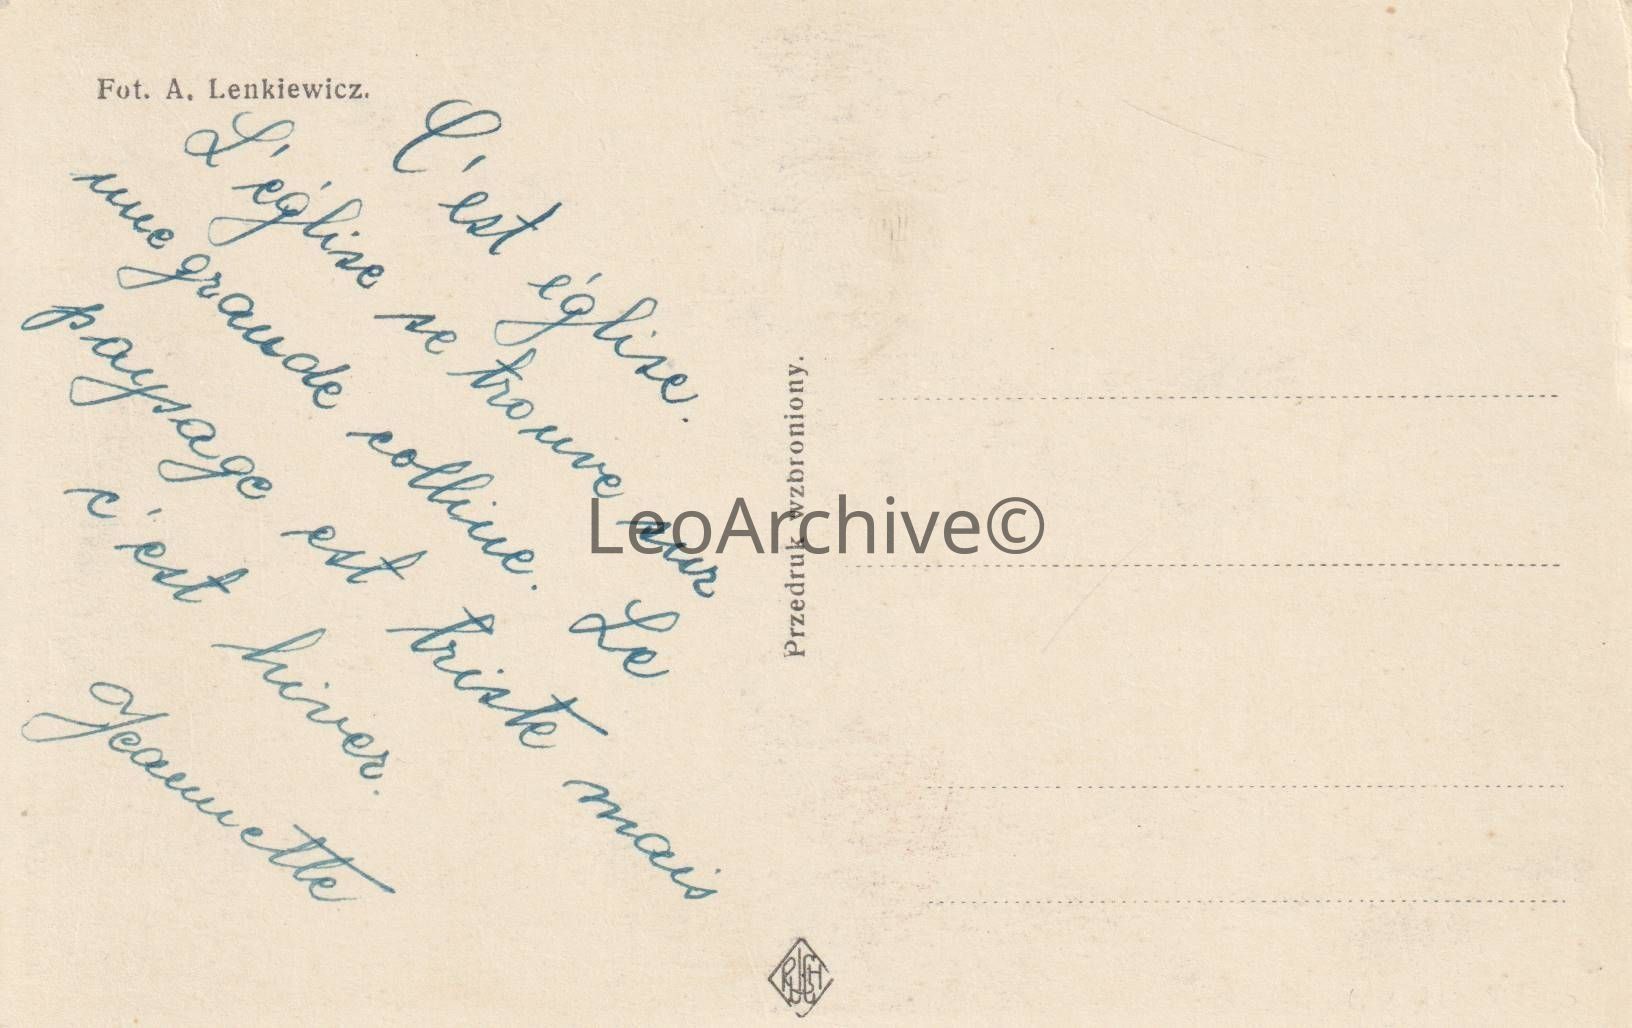 Fot. A. Lenkiewicz.
C'est église.
L'église se trouve sur
une grande colline. Le
paysage est triste mais
c'est hiver.
Jeannette
Przedruk wzbroniony.
LeoArchive©